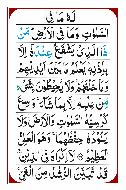 لَهٗ مَا فِی
السَّمٰوٰتِ وَمَا فِی الْاَرْضِ ؕ مَنْ
ذَا الَّذِیْ یَشْفَعُ عِنْدَهٗۤ اِلَّا
بِاِذْنِهٖ ؕ یَعْلَمُ مَا بَیْنَ اَیْدِیْهِمْ
وَمَا خَلْفَهُمْ ۚ وَلَا یُحِیْطُوْنَ بِشَیْءٍ
مِّنْ عِلْمِهٖۤ اِلَّا بِمَا شَآءَ ۚ وَسِعَ
كُرْسِیُّهُ السَّمٰوٰتِ وَالْاَرْضَ ۚ وَلَا
یَـُٔوْدُهٗ حِفْظُهُمَا ۚ وَهُوَ الْعَلِیُّ
الْعَظِیْمُ ۝ لَاۤ اِكْرَاهَ فِی الدِّیْنِ ۙ
قَدْ تَّبَیَّنَ الرُّشْدُ مِنَ الْغَیِّ ۚ